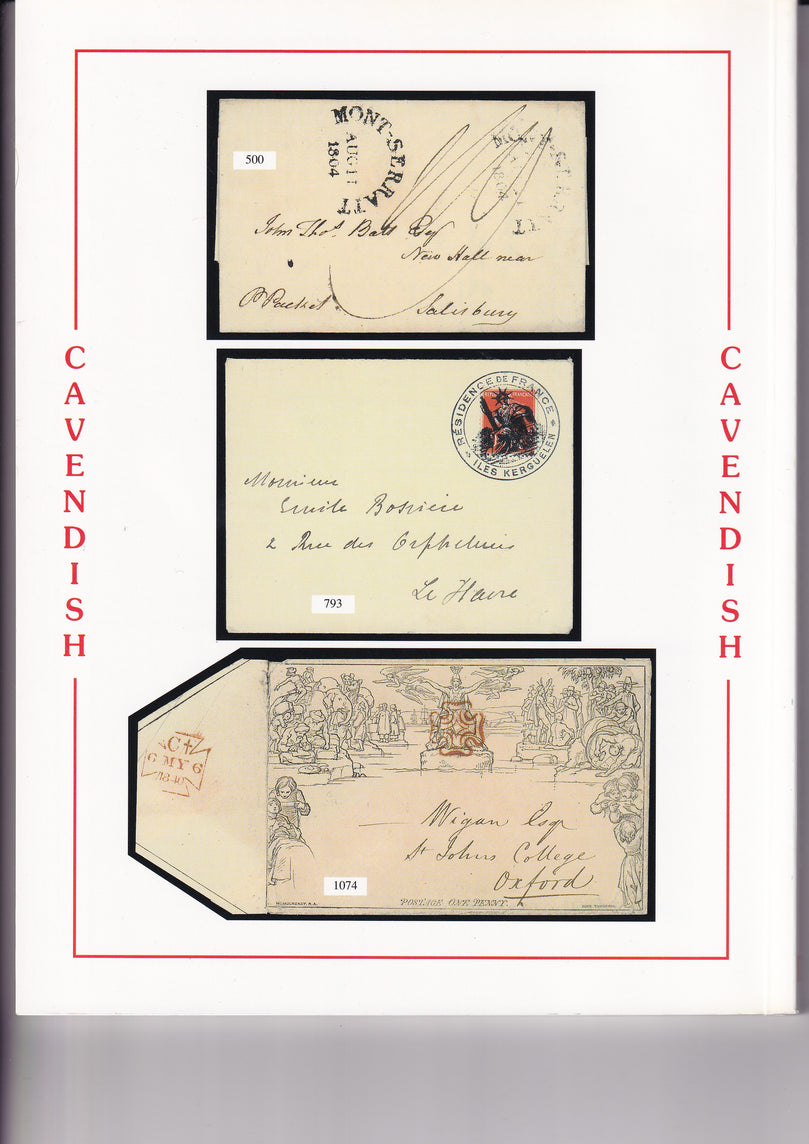 CAVENDISH
MONT-SERRATT
AUG 11
1804
500
John Thos. Batt Esqr
New Hall near
Pr Packet
Salisbury
RÉSIDENCE DE FRANCE
ILES KERGUELEN
Monsieur
Emile Bossière
2 Rue des Orphelines
Le Havre
793
C
6 MY 6
1840
Wigan Esqr
St Johns College
Oxford
1074
W. MULREADY, R.A.
POSTAGE ONE PENNY.
JOHN THOMPSON
CAVENDISH